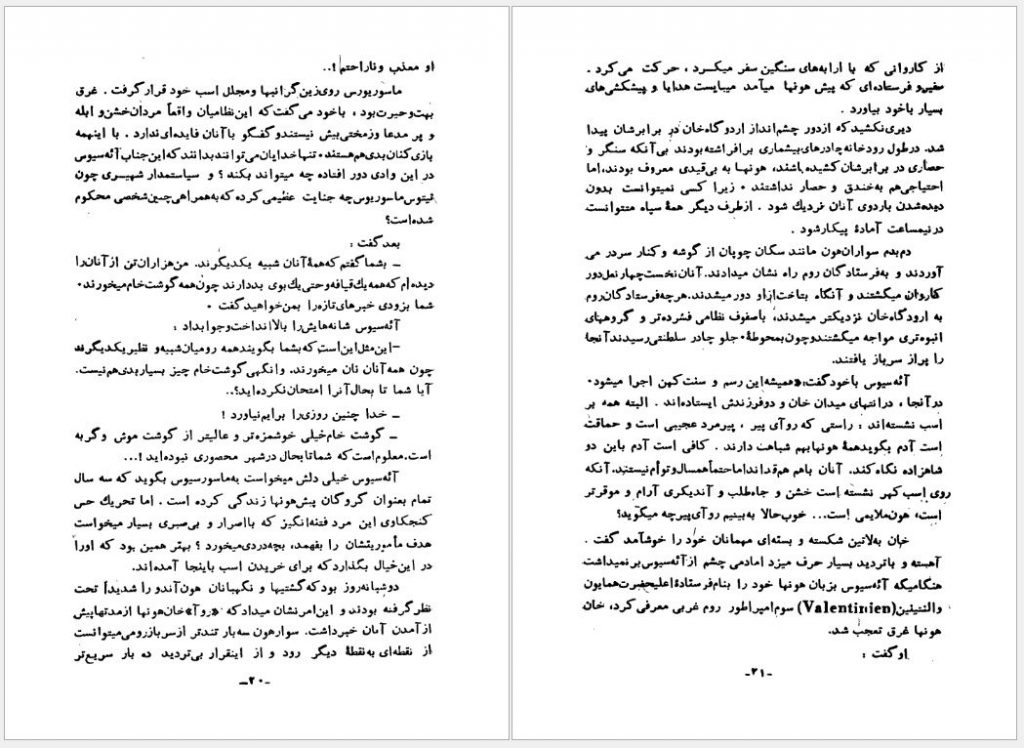 او معذب وناراحتم !..
ماسوریورس روی‌زین گرانبها ومجلل اسب خود قرارگرفت . غرق
بهت‌وحیرت‌بود ، باخود می‌گفت‌که این‌نظامیان واقعاً مردان‌خشن‌و ابله
و پر مدعا وزمختی‌بیش نیستندوگفتگو باآنان فایده‌ای‌ندارد . با اینهمه
بازی‌کنان‌بدی‌هم‌هستند۰ تنهاخدایان‌می‌توانندبدانندکه‌این‌جناب‌آئه‌سیوس
در این وادی دور افتاده چه میتواند بکند ؟ و سیاستمدار شهیری چون
فیتوس‌ماسوریوس‌چه جنایت عظیمی کرده‌که‌به‌همراهی‌چنین‌شخصی محکوم
شده‌است؟
بعدگفت :
ـ بشماگفتم‌که‌همهٔ‌آنان شبیه یکدیگرند. من‌هزاران‌تن ازآنان‌را
دیده‌ام‌که‌همه‌یك‌قیافه‌وحتی‌یك‌بوی بددارند چون‌همه‌گوشت‌خام‌میخورند۰
شما بزودی خبرهای‌تازه‌را بمن‌خواهیدگفت ۰
آئه‌سیوس شانه‌هایش‌را بالاانداخت‌وجوابداد :
ـ‌این‌مثل‌این‌است‌که‌بشما بگویندهمه رومیان‌شبیه‌و نظیر‌یکدیگرند
چون همه‌آنان نان میخورند. وانگهی‌گوشت‌خام چیز بسیاربدی‌هم‌نیست.
آیا شما تا بحال‌آنرا امتحان‌نکرده‌اید؟..
ـ خدا چنین روزی‌را برایم‌نیاورد !
ـ گوشت خام‌خیلی خوشمزه‌تر و عالیتر از گوشت موش وگربه
است.معلوم‌است که شماتابحال درشهر محصوری نبوده‌اید !...
آئه‌سیوس خیلی دلش میخواست به‌ماسورسیوس بگوید که سه سال
تمام بعنوان گروگان پیش‌هونها زندگی کرده است . اما تحریك حس
کنجکاوی این مرد فتنه‌انگیز که بااصرار و بی‌صبری بسیار میخواست
هدف مأموریتشان را بفهمد، بچه‌دردی‌میخورد ؟ بهتر همین بود که اورا
در این‌خیال بگذارد که برای خریدن اسب باینجا آمده‌اند.
دوشبانه‌روز بودکه‌گشتیها و نگهبانان هون‌آندو را شدیداً تحت
نظرگرفته بودند و این‌امرنشان میدادکه «روآ»خان‌هونها ازمدتهاپیش
ازآمدن آنان خبرداشت. سوارهون سه‌بار تندتر ازسربازرومی‌میتوانست
از نقطه‌ای به‌نقطهٔ دیگر رود و از اینقرار بی‌تردید ده بار سریع‌تر
-۲۰-
از کاروانی که با ارابه‌های سنگین سفر میکرد ، حرکت می‌کرد .
سفیرو فرستاده‌ای که پیش هونها میآمد میبایست هدایا و پیشکشی‌های
بسیار باخود بیاورد .
دیری‌نکشیدکه ازدور چشم‌انداز اردوگاه‌خان در برابرشان پیدا
شد. درطول رودخانه‌چادرهای‌بیشماری برافراشته‌بودند بی‌آنکه سنگر و
حصاری در برابرشان کشیده باشند، هونها به بی‌قیدی معروف بودند،اما
احتیاجی‌هم به‌خندق و حصار نداشتند ۰ زیرا کسی نمیتوانست بدون
دیده‌شدن باردوی آنان نزدیك شود . ازطرف دیگر همهٔ سپاه متتوانست
درنیمساعت آمادهٔ پیکارشود .
دم‌بدم سواران‌هون مانند سکان چوپان از گوشه و کنار سردر می
آوردند و به‌فرستادگان روم راه نشان میدادند. آنان‌نخست‌چهارنعل‌دور
کاروان میگشتند و آنگاه بتاخت‌ازاو دورمیشدند.هرچه‌فرستادگان‌روم
به اردوگاه‌خان نزدیکتر میشدند، باصفوف نظامی فشرده‌تر و گروههای
انبوه‌تری مواجه میگشتندوچون‌بمحوطهٔ‌جلو چادر سلطنتی‌رسیدندآنجا
را پراز سرباز یافتند.
آئه‌سیوس باخودگفت:«همیشه‌این رسم و سنت کهن اجرا میشود۰
درآنجا ، درانتهای میدان خان و دوفرزندش ایستاده‌اند . البته همه بر
اسب نشسته‌اند : راستی که روآی پیر ، پیرمرد عجیبی است و حماقت
است آدم بگویدهمهٔ هونهابهم شباهت دارند . کافی است آدم باین دو
شاهزاده نگاه کند. آنان باهم هم‌قدانداماحتماًهمسال‌وتوأم‌نیستند.آنکه
روی اسب کهر نشسته است خشن و جاه‌طلب و آندیگری آرام و موقرتر
است، هون‌ملایمی است... خوب‌حالا به‌بینیم روآی‌پیرچه میگوید؟
خان به‌لاتین شکسته و بسته‌ای مهمانان خود را خوشآمد گفت .
آهسته و باتردید بسیار حرف میزد امادمی چشم ازآئه‌سیوس برنمیداشت
هنگامیکه آئه‌سیوس بزبان هونها خود را بنام‌فرستادهٔ‌اعلیحضرت‌همایون
والنتینین(Valentinien) سوم‌امپراطور روم غربی معرفی‌کرد، خان
هونها غرق تعجب شد.
اوگفت :
-۲۱-